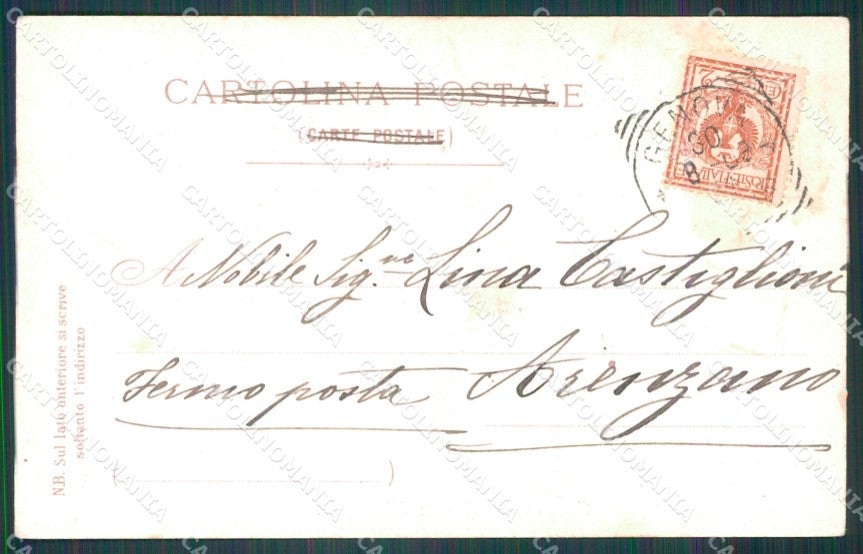 CARTOLINA POSTALE
(CARTE POSTALE)
GENOVA
30
8
POSTE ITALIANE
A Nobile Sig.na Lina Castiglioni
Fermo posta Arenzano
N.B. Sul lato anteriore si scrive
soltanto l'indirizzo
CARTOLINOMANIA